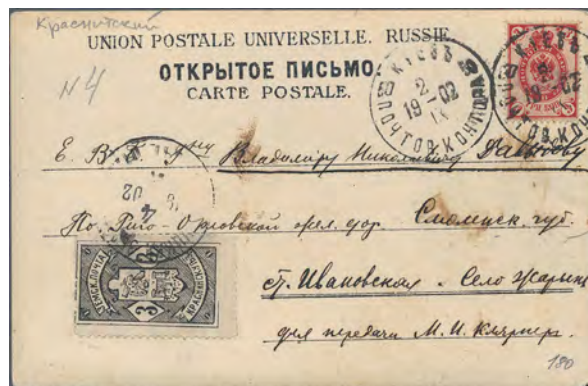 Краснинский
UNION POSTALE UNIVERSELLE. RUSSIE.
ОТКРЫТОЕ ПИСЬМО.
CARTE POSTALE.
N 4
КІЕВЪ
2
19 02
ПОЧТОВ. КОНТОРА
КІЕВЪ
19 02
ПОЧТОВ. КОН
Е. В. Владимиру Николаевичу
4
02
По Риго-Орловской жел. дор. Смоленск. губ.
ст. Ивановская - Село
для передачи М. И.
ЗЕМСК. ПОЧТА
КРАСНИНСК
3 3
180